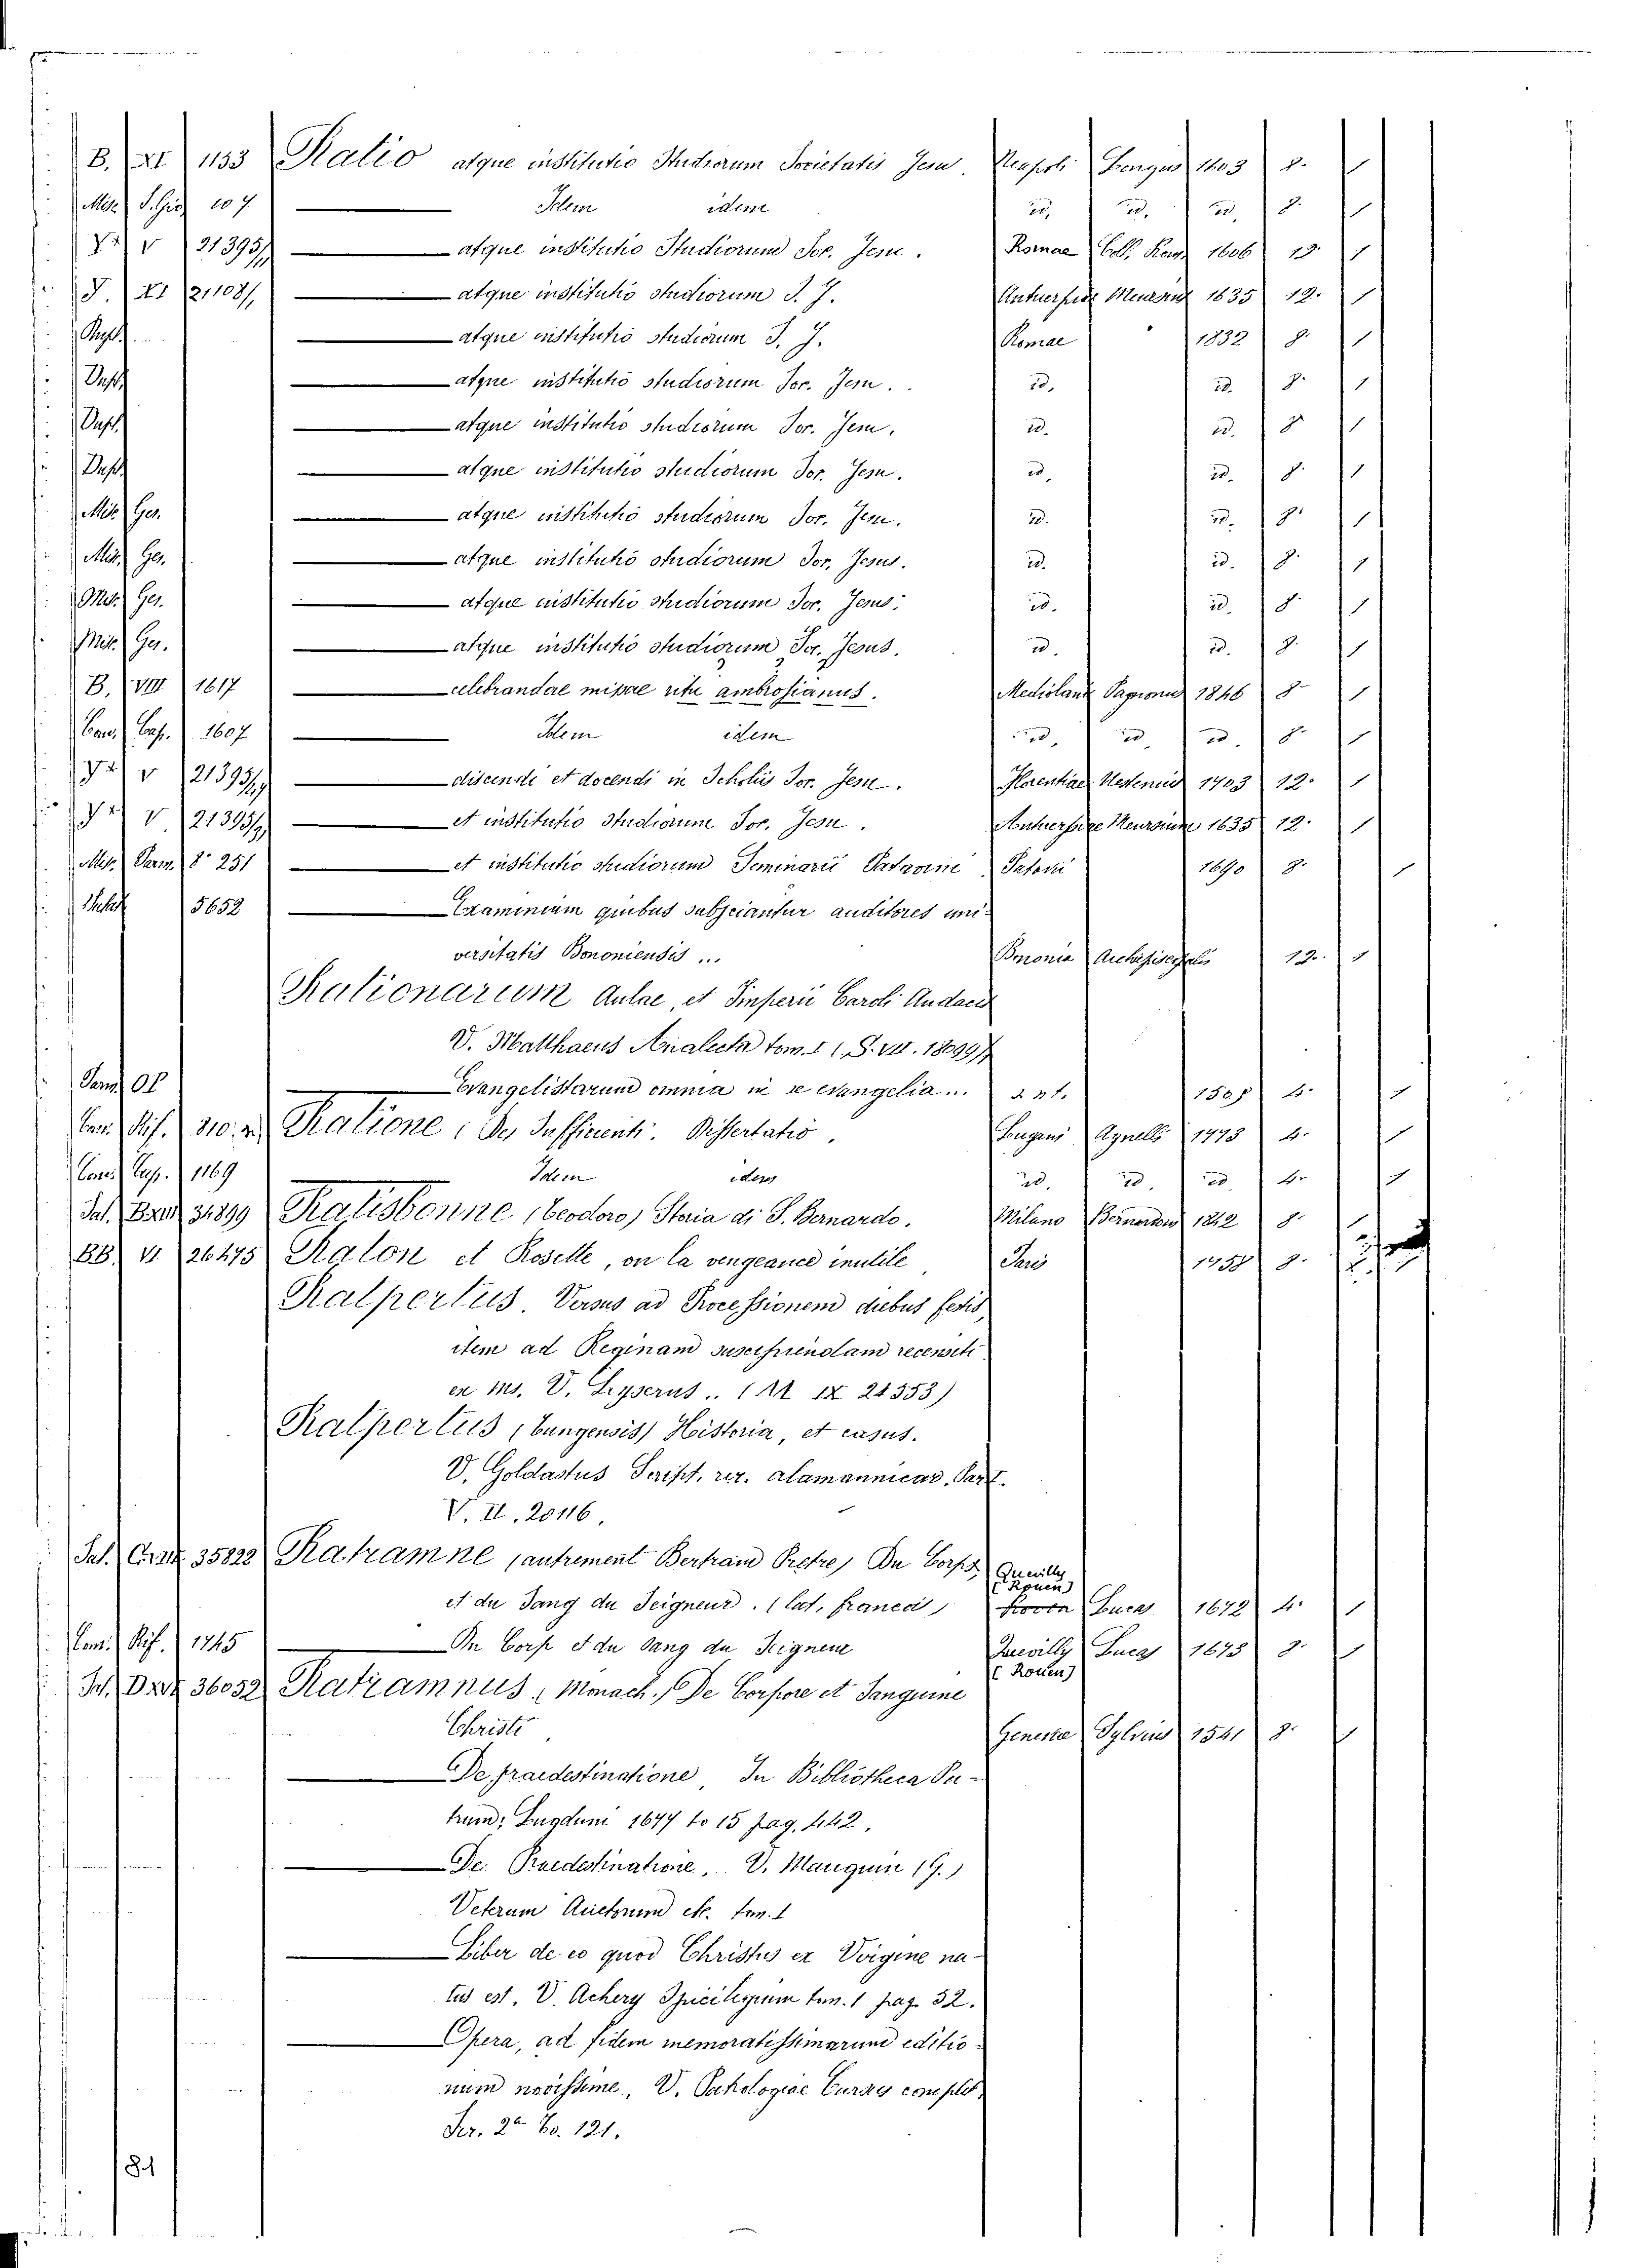 B. XI 1133 Ratio atque institutio Studiorum Societatis Jesu. Neapoli Longus 1603 8. 1
Mis. S. Gio 107 Idem idem id. id. id. 8. 1
V 21395/ atque institutio Studiorum Soc. Jesu. Romae Coll. Rom. 1606 12. 1
XI 21108/ atque institutio studiorum S. J. Antuerpiae Meursius 1635 12. 1
Dupl. atque institutio studiorum S. J. Romae 1832 8. 1
Dupl. atque institutio studiorum Soc. Jesu. id. id. 8. 1
Dupl. atque institutio studiorum Soc. Jesu. id. id. 8 1
Dupl. atque institutio studiorum Soc. Jesu. id. id. 8. 1
Mis. Ges. atque institutio studiorum Soc. Jesu. id. id. 8. 1
Mis. Ges. atque institutio studiorum Soc. Jesus. id. id. 8. 1
Mis. Ges. atque institutio studiorum Soc. Jesus. id. id. 8. 1
Mis. Ges. atque institutio studiorum Soc. Jesus. id. id. 8. 1
B. VIII 1617 celebrandae missae ritu ambrosianus. Mediolani 1846 8 1
Con. Cap. 1607 Idem idem id. id id. 8. 1
V 21395/ discendi et docendi in Scholis Soc. Jesu. Florentiae 1703 12. 1
V 21395/ et institutio Studiorum Soc. Jesu. Antuerpiae Meursium 1635 12. 1
Mis. Parm. 8° 251 et institutio studiorum Seminarii Patavini Patavii 1690 8. 1
5652 Examinium quibus subjiciantur auditores uni-
versitatis Bononiensis ... Bononia Archiepiscopalis 12. 1
Rationarum Aulae, et Imperii Caroli Audacis
V. Matthaeus Analecta tom. I (S. VII. 18099/
Evangelistarum omnia in se evangelia... 4. 1
Con. Rif. 210. Ratione (De Sufficienti. Dissertatio. Lugani Agnelli 1773 4. 1
Con. Cap. 1169 Idem idem id. id. id. 4. 1
34899 Ratisbonne (Teodoro) Storia di S. Bernardo. Milano Bernardoni 1842 8. 1
BB. VI 26475 Raton et Rosette, ou la vengeance inutile Paris 8.
Ratpertus. Versus ad Processionem diebus festis,
item ad Reginam suscipiendam recensiti
ex ms. V. Lyserus.. (AA IX 21353)
Ratpertus (Sangensis) Historia, et casus.
V. Goldastus Script. rer. alamannicar. Par I.
V. II. 20116.
35822 Ratramne (autrement Bertram Pretre) Du Corps Quevilly
(Rouen)
et du Sang du Seigneur. (lat. francei) Rouen Lucas 1672 4. 1
Con. Rif. 1745 Du Corp et du sang du Seigneur Quevilly Lucas 1673 8. 1
(Rouen)
36052 Ratramnus (Monach.) De Corpore et Sanguine
Christi Genevae Sylvius 1541 8. 1
De praedestinatione, In Bibliotheca Pa-
trum, Lugduni 1677 to 15 pag. 442.
De Praedestinatione, V. Mauguin (G.)
Veterum Auctorum etc. tom. I
Liber de eo quod Christus ex Virgine na-
tus est. V. Achery Spicilegium tom. 1 pag. 32.
Opera, ad fidem memoratissimarum editio-
num novissime, V. Patrologiae Cursus complet
Ser. 2a to. 121.
81